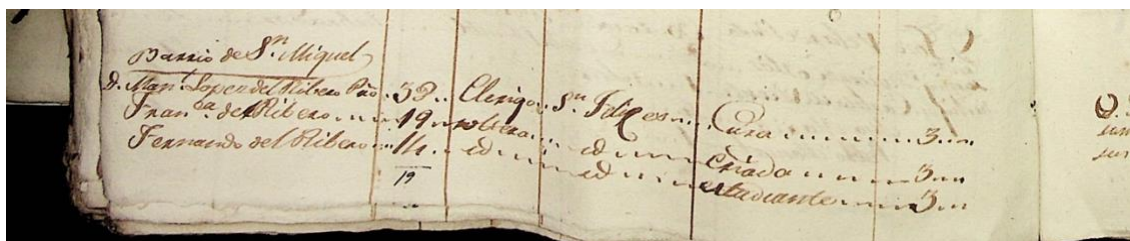 Barrio de Sn. Miguel
D. Manl. Lopez del Ribero Pño. 39.. Clerigo.. Sn. Felizes.... Cura.......3...
Franca. del Ribero.... 19.. soltera... id..... Criada.......3...
Fernando del Ribero... 14.. id.... id..... estudiante.......3...
19